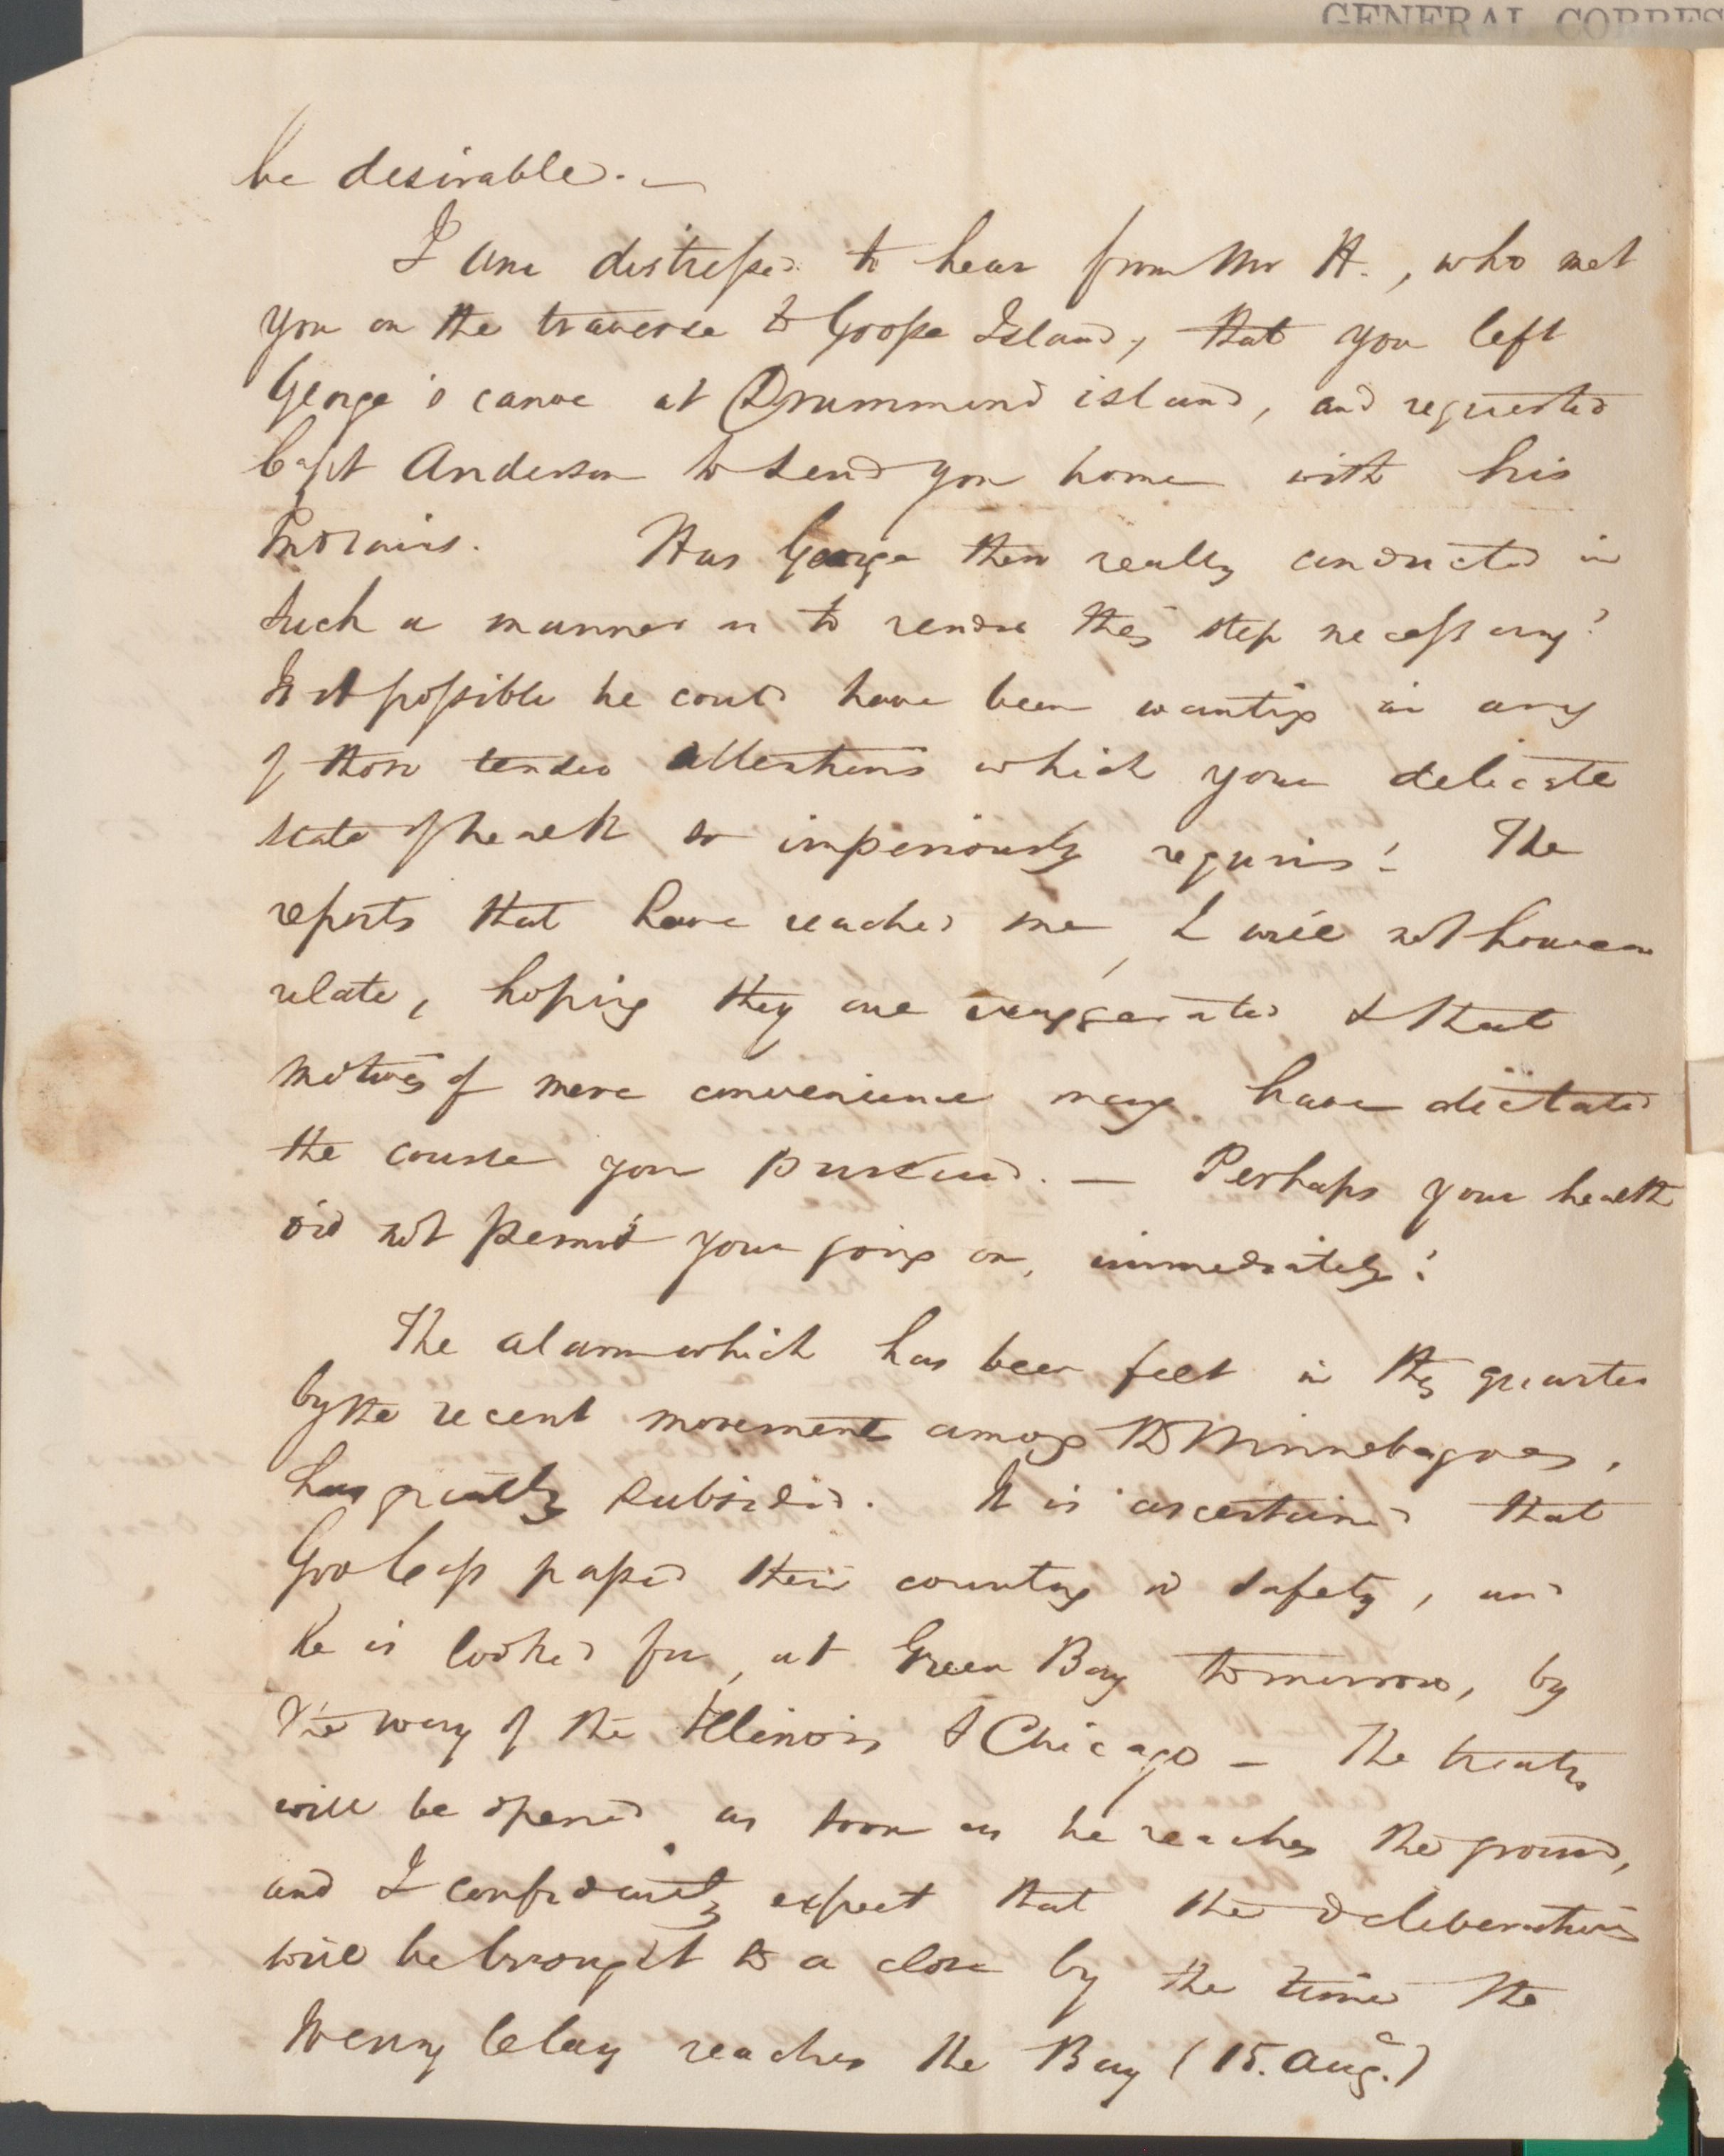 GENERAL CORRES
be desirable. —
I am distressed to hear from Mr H., who met
you on the traverse to Goose Island, that you left
George's canoe at Drummond island, and requested
Capt Anderson to send you home with his
Indians. Has George then really conducted in
such a manner as to render this step necessary?
Is it possible he could have been wanting in any
of those tender attentions which your delicate
state of health so imperiously requires! The
reports that have reached me, I will not however
relate, hoping they are exaggerated & that
motives of mere convenience may have dictated
the course you pursued. — Perhaps your health
did not permit your going on, immediately!
The alarm which has been felt in this quarter
by the recent movement among the Winnebagoes,
has greatly subsided. It is ascertained that
Gov Cass passed their country in safety, and
he is looked for, at Green Bay tomorrow, by
the way of the Illinois & Chicago — The treaty
will be opened as soon as he reaches the ground,
and I confidently expect that the deliberations
will be brought to a close by the time the
Henry Clay reaches the Bay (15. Aug.)